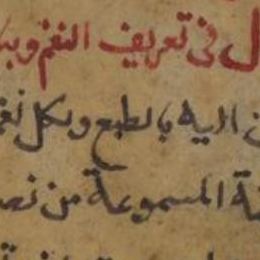 ل فى تعريف النغم وبيا
ن اليه بالطبع ولكل نغم
ة المسموعة من نص